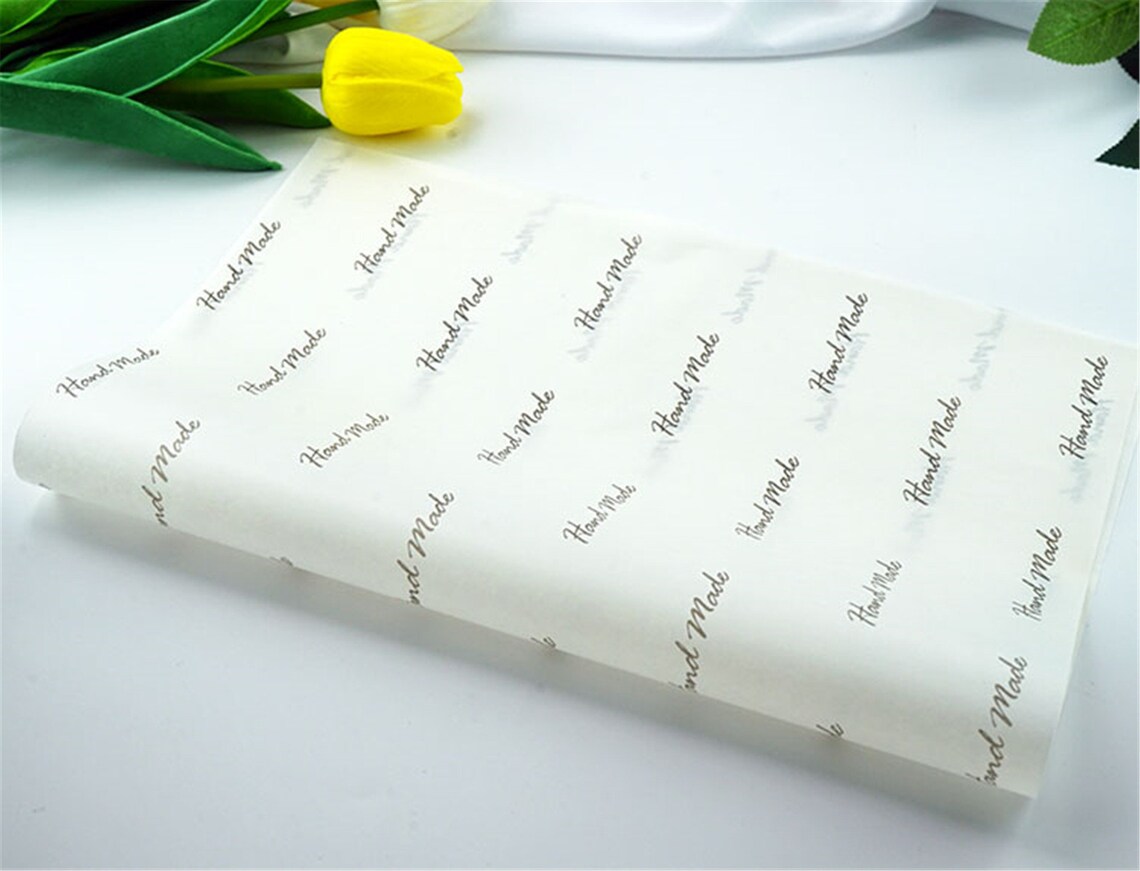 Hand Made
Hand Made
Hand Made
Hand Made
Hand Made
Hand Made
Hand Made
Hand Made
Hand Made
Hand Made
Hand Made
Hand Made
Hand Made
Hand Made
Hand Made
Hand Made
nd Made
nd Made
and Made
and Made